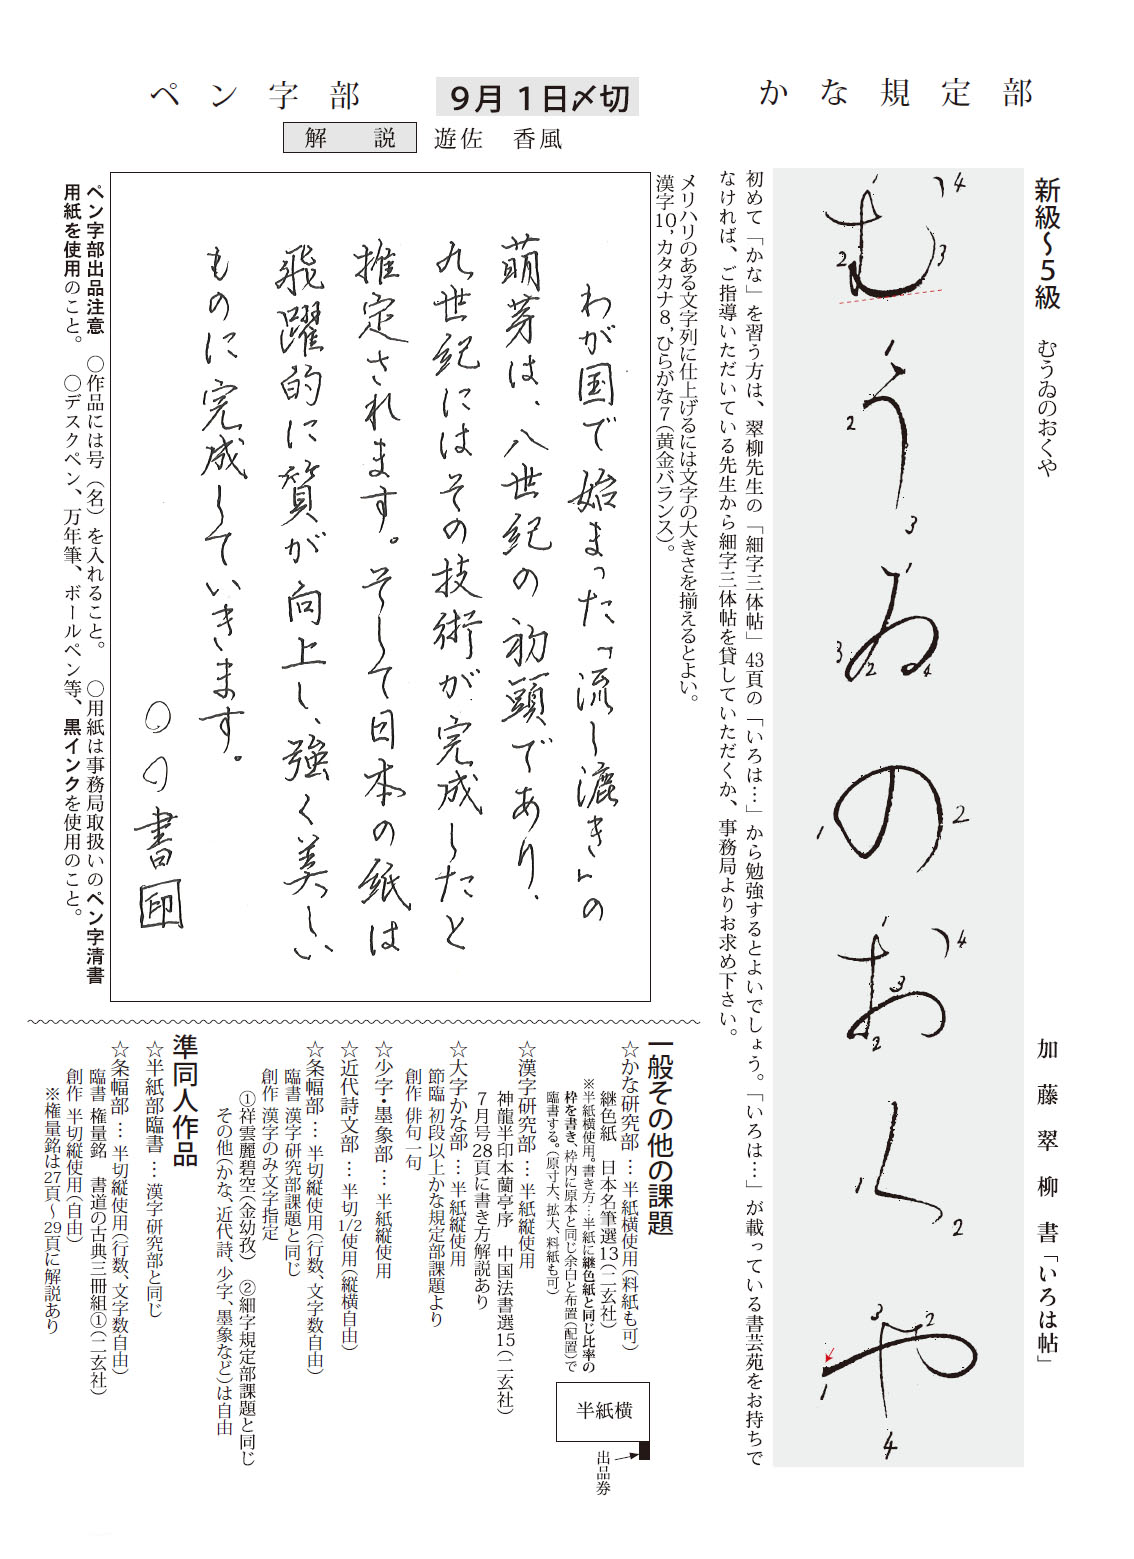 かな規定部
9月1日〆切
ペン字部
解　説　遊佐　香風
新級〜5級　むうゐのおくや
加藤翠柳書「いろは帖」
むうゐのおくや
1
2
3
4
1
2
3
1
2
3
4
1
2
1
2
3
4
1
2
1
2
3
4
初めて「かな」を習う方は、翠柳先生の「細字三体帖」43頁の「いろは…」から勉強するとよいでしょう。「いろは…」が載っている書芸苑をお持ちで
なければ、ご指導いただいている先生から細字三体帖を貸していただくか、事務局よりお求め下さい。
メリハリのある文字列に仕上げるには文字の大きさを揃えるとよい。
漢字10，カタカナ8，ひらがな7（黄金バランス）。
わが国で始まった「流し漉き」の
萌芽は、八世紀の初頭であり、
九世紀にはその技術が完成したと
推定されます。そして日本の紙は
飛躍的に質が向上し、強く美しい
ものに完成していきます。
〇〇書 印
ペン字部出品注意　○作品には号（名）を入れること。　○用紙は事務局取扱いのペン字清書
用紙を使用のこと。　○デスクペン、万年筆、ボールペン等、黒インクを使用のこと。
一般その他の課題
☆かな研究部 … 半紙横使用（料紙も可）
継色紙　日本名筆選13（二玄社）
※半紙横使用。書き方…半紙に継色紙と同じ比率の
枠を書き、枠内に原本と同じ余白と布置（配置）で
臨書する。（原寸大、拡大、料紙も可）
半紙横
出品券
☆漢字研究部 … 半紙縦使用
神龍半印本蘭亭序　中国法書選15（二玄社）
7月号28頁に書き方解説あり
☆大字かな部 … 半紙縦使用
節臨 初段以上かな規定部課題より
創作 俳句一句
☆少字・墨象部 … 半紙縦使用
☆近代詩文部 … 半切1/2使用（縦横自由）
☆条幅部 … 半切縦使用（行数、文字数自由）
臨書 漢字研究部課題と同じ
創作 漢字のみ文字指定
①祥雲麗碧空（金幼孜）　②細字規定部課題と同じ
その他（かな、近代詩、少字、墨象など）は自由
準同人作品
☆半紙部臨書 … 漢字研究部と同じ
☆条幅部 … 半切縦使用（行数、文字数自由）
臨書 権量銘　書道の古典三冊組①（二玄社）
創作 半切縦使用（自由）
※権量銘は27頁〜29頁に解説あり